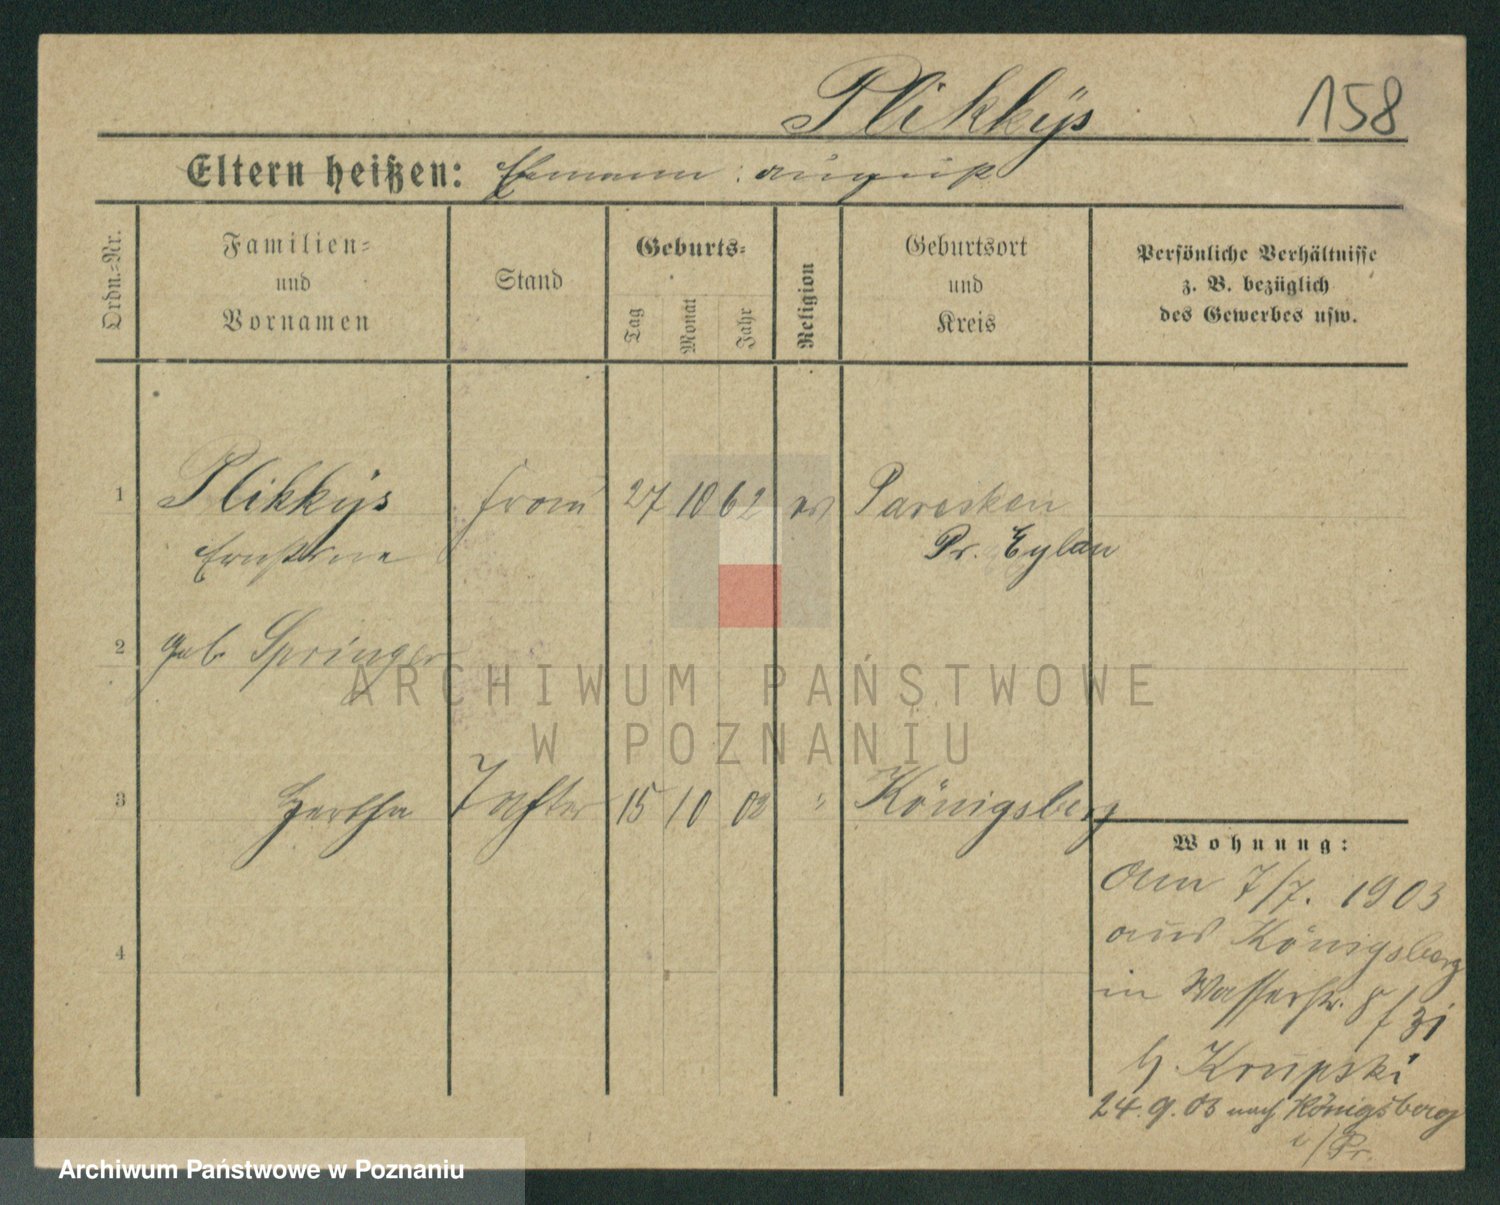 Plikkÿs 158
Eltern heißen: Ehmann: August
Ordn.=Nr.
Familien=
und
Vornamen
Stand
Geburts=
Tag
Monat
Jahr
Religion
Geburtsort
und
Kreis
Persönliche Verhältnisse
z. B. bezüglich
des Gewerbes usw.
1 Plikkÿs Frau 27 10 62 ev Paresken
Ernstine Pr. Eylau
2 geb. Springer
ARCHIWUM PAŃSTWOWE
W POZNANIU
3 Hertha Tochter 15 10 02 " Königsberg
Wohnung:
Am 7/7. 1903
aus Königsberg
4
in Wasserstr. 8/31
b. Krupski
24.9.03 nach Königsberg
i/Pr.
Archiwum Państwowe w Poznaniu